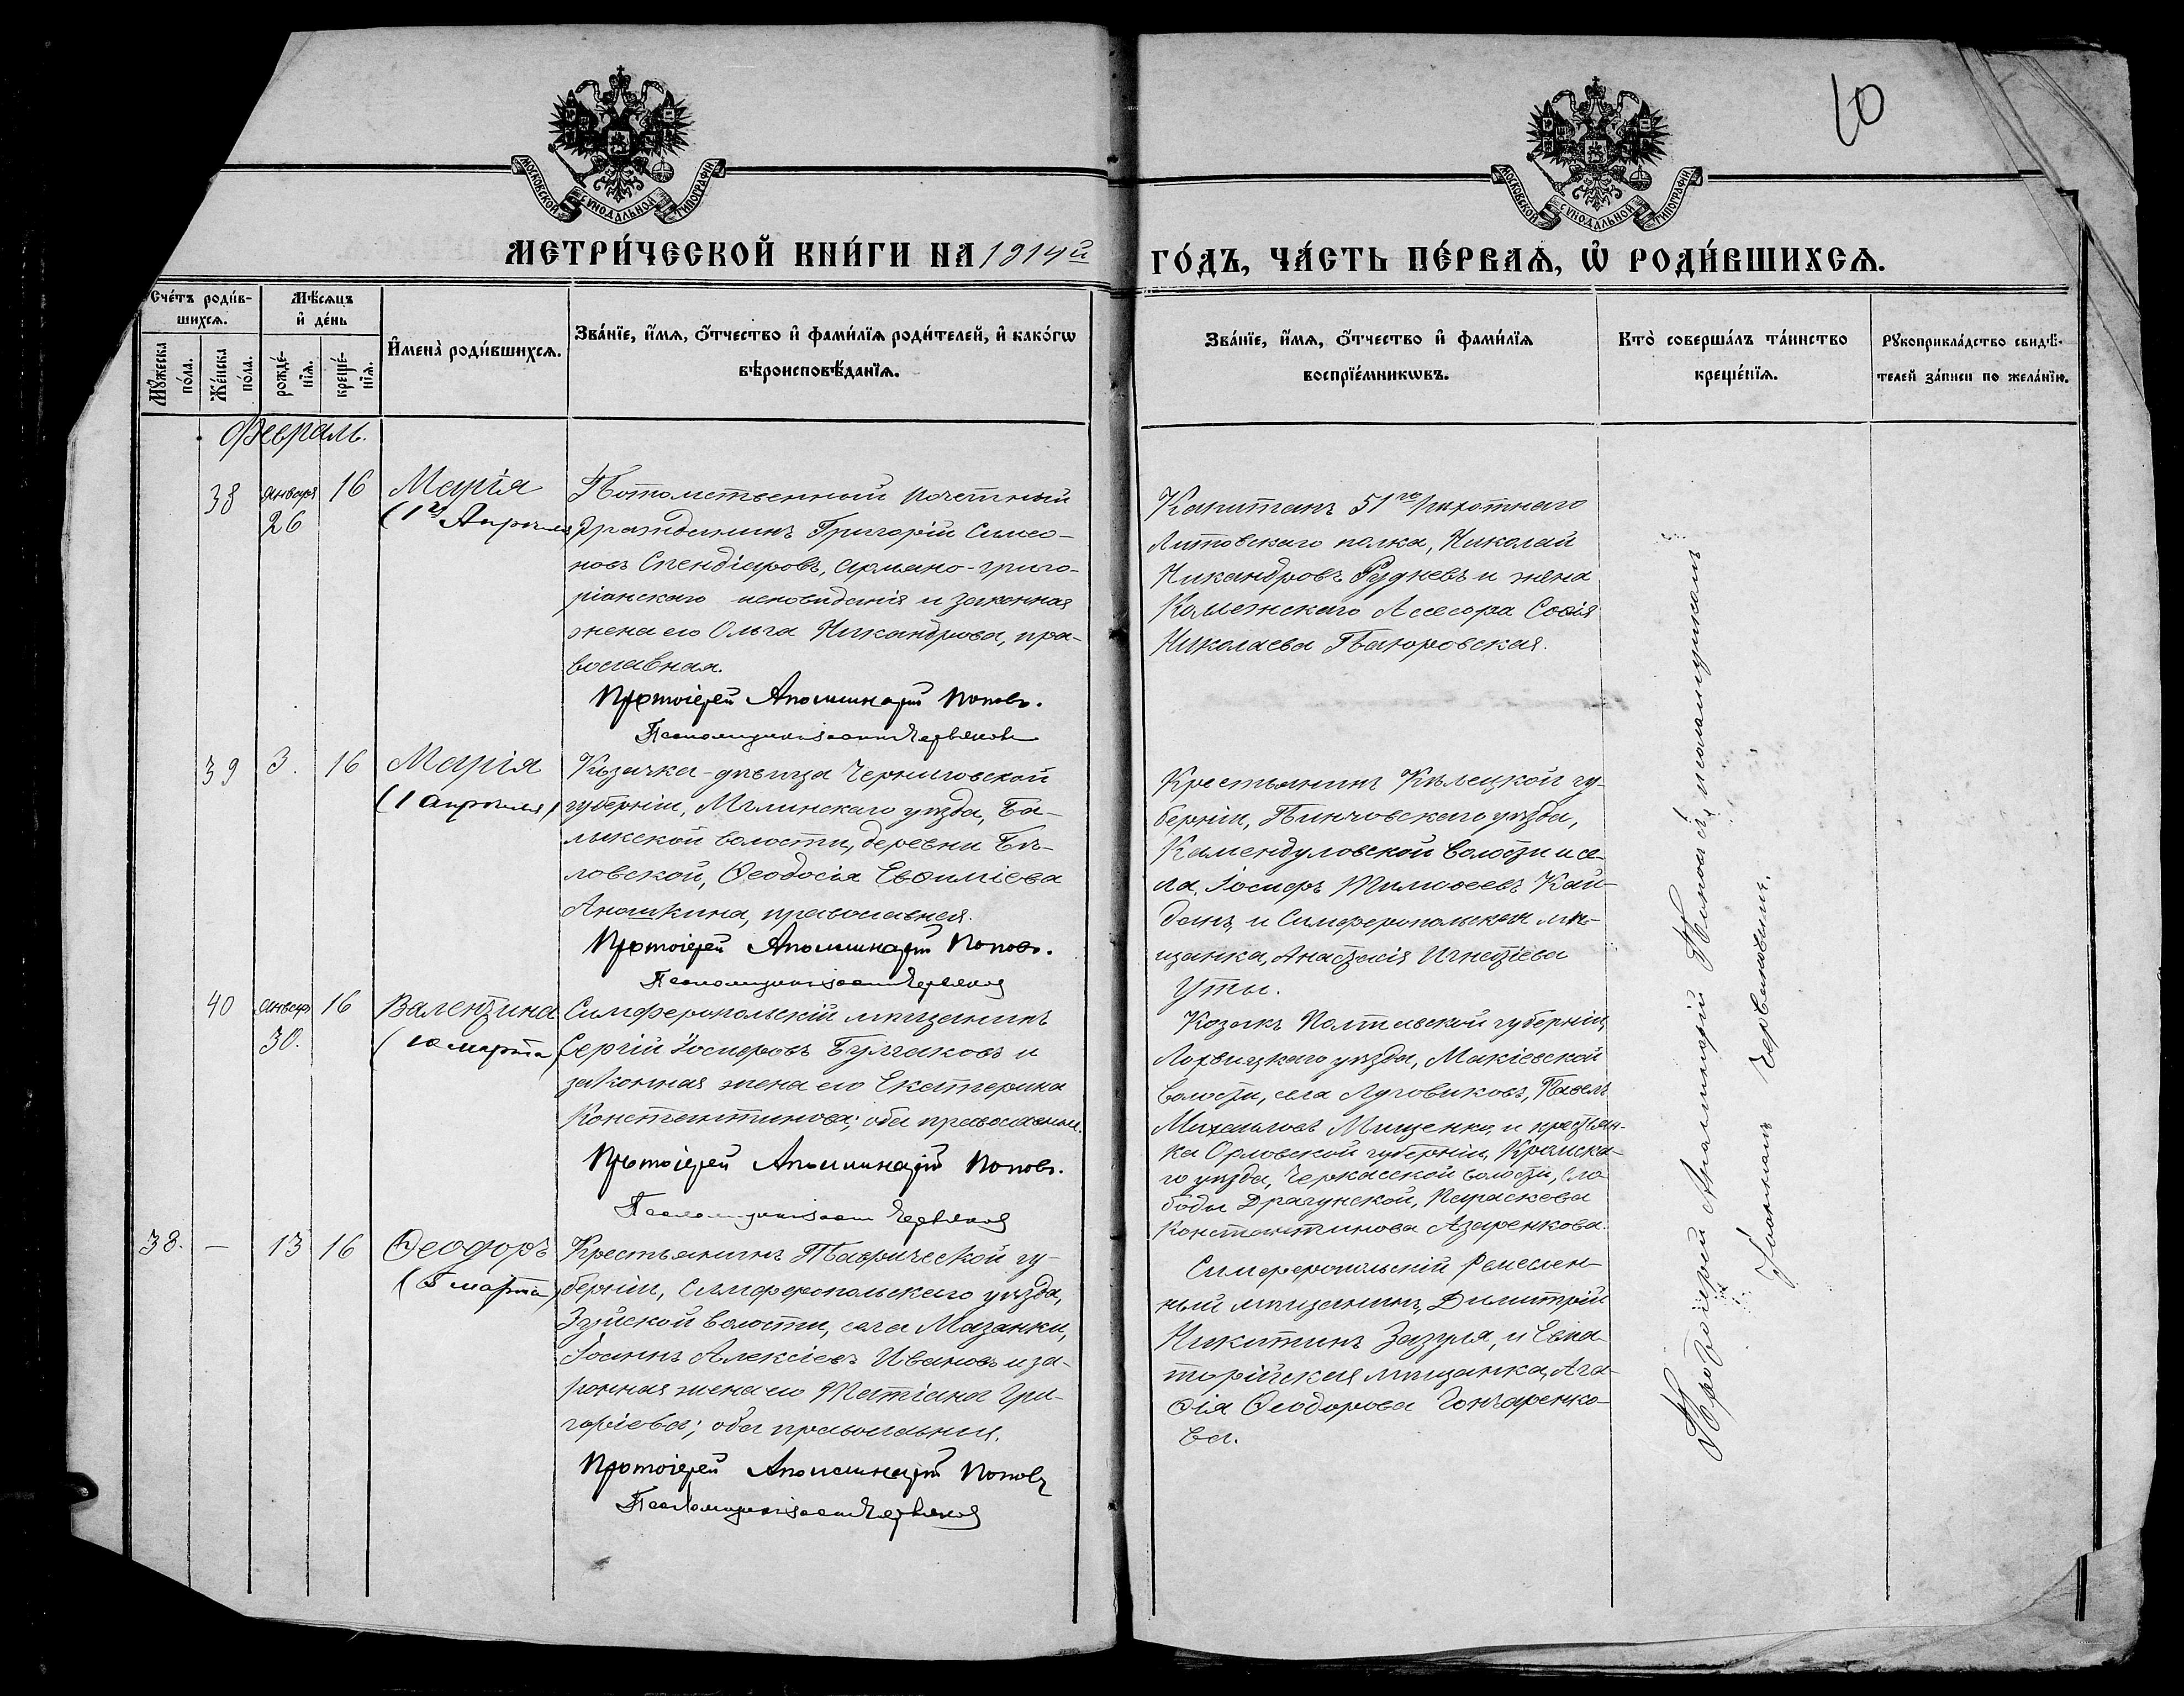 10
МОСКОВСКОЙ СУНОДАЛЬНОЙ ТИПОГРАФІИ
МОСКОВСКОЙ СУНОДАЛЬНОЙ ТИПОГРАФІИ
МЕТРИ́ЧЕСКОЙ КНИ́ГИ НА 1914й
ГО́ДЪ, ЧА́СТЬ ПЕ́РВАѦ, Ѡ҆ РОДИ́ВШИХСѦ.
Сче́тъ роди́в-
шихсѧ.
Мѣ́сѧцъ
и҆ де́нь
Мꙋ́жеска
по́ла.
Же́нска
по́ла.
рожде́-
нїѧ.
креще́-
нїѧ.
И҆мена̀ роди́вшихсѧ.
Зва́нїе, и҆́мѧ, ѻ҆́тчество и҆ фами́лїѧ роди́телей, и҆ како́гѡ
вѣроисповѣ́данїѧ.
Зва́нїе, и҆́мѧ, ѻ҆́тчество и҆ фами́лїѧ
воспрїе́мникѡвъ.
Кто̀ соверша́лъ та́инство
креще́нїѧ.
Рꙋкоприкла́дство свидѣ́-
телей за́писи по жела́нїю.
Февраль.
38
января
26
16
Марія
(1го Апрѣля)
Потомственный почетный
Гражданинъ Григорій Симео-
новъ Спендіаровъ, армяно-григо-
ріанскаго исповѣданія и законная
жена его Ольга Никандрова, пра-
вославная.
Протоіерей Аполлинарій Поповъ.
Псаломщикъ Іоаннъ Червяковъ
Капитанъ 51го пѣхотнаго
Литовскаго полка, Николай
Никандровъ Рудневъ и жена
Коллежскаго Ассесора Софія
Николаева
39
3.
16
Марія
(1 апрѣля)
Козачка-дѣвица Черниговской
губерніи, Мглинскаго уѣзда, Ба-
лыкской волости, деревни Бѣ-
ловской, Ѳеодосія Евѳиміева
Аношкина, православная.
Протоіерей Аполлинарій Поповъ.
Псаломщикъ Іоаннъ Червяковъ
Крестьянинъ Кѣлецкой гу-
берніи, Пинчовскаго уѣзда,
Камендуловской волости и се-
ла, Іосифъ Тимоѳеевъ Кай-
данъ, и Симферопольская мѣ-
щанка, Анастасія Игнатіева
Уты.
40
января
30.
16
Валентина
(10 марта)
Симферопольскій мѣщанинъ
Сергій Іосифовъ Булгаковъ и
законная жена его Екатерина
Константинова; оба православные.
Протоіерей Аполлинарій Поповъ.
Псаломщикъ Іоаннъ Червяковъ
Козакъ Полтавской губерніи,
Лохвицкаго уѣзда, Макіевской
волости, села Луговиковъ, Павелъ
Михайловъ Мищенко, и крестьян-
ка Орловской губерніи, Кромска-
го уѣзда, Черкасской волости, Сло-
боды Драгунской, Параскева
Константинова Азаренкова.
38.
—
13
16
Ѳеодоръ
(5 марта)
Крестьянинъ Таврической гу-
берніи, Симферопольскаго уѣзда,
Зуйской волости, села Мазанки,
Іоаннъ Алексіевъ Ивановъ и за-
конная жена его Татіана Гри-
горіева; оба православные.
Протоіерей Аполлинарій Поповъ
Псаломщикъ Іоаннъ Червяковъ
Симферопольскій Ремеслен-
ный мѣщанинъ, Димитрій
Никитинъ Зазуля, и Евпа-
торійская мѣщанка, Ага-
ѳія Ѳеодорова Гончаренко-
ва.
Протоіерей Аполлинарій Поповъ съ псаломщикомъ
Іоанномъ Червяковымъ.